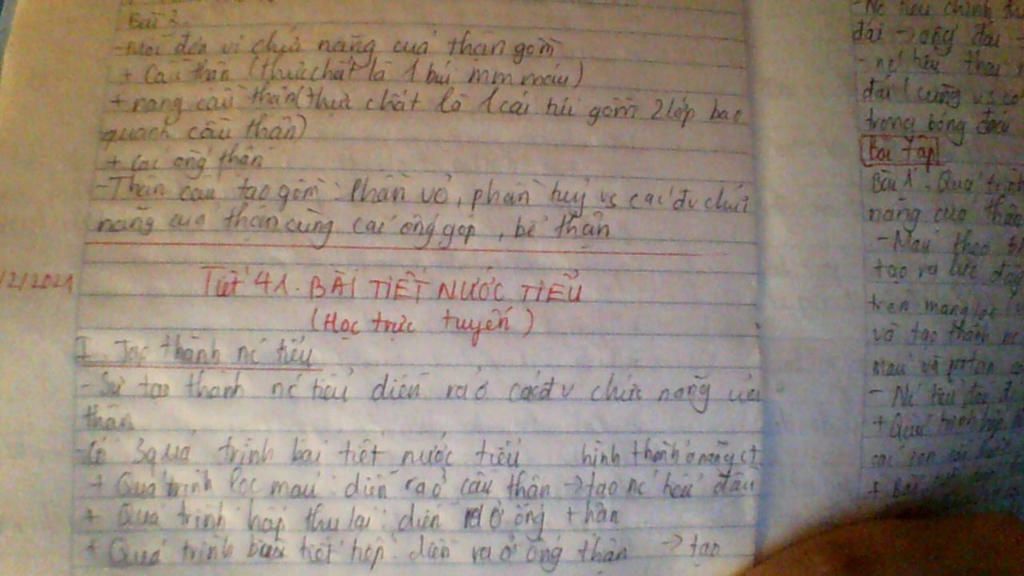 Bài 2.
- Mỗi đơn vị chức năng của thận gồm
+ Cầu thận (thực chất là 1 búi mm máu)
+ nang cầu thận (thực chất là 1 cái túi gồm 2 lớp bao
quanh cầu thận)
+ Các ống thận
- Thận cấu tạo gồm: Phần vỏ, phần tuỷ vs các đv chức
năng của thận cùng các ống góp, bể thận
/2/2021
Tiết 41. BÀI TIẾT NƯỚC TIỂU
(Học trực tuyến)
I. Tạo thành nc tiểu
- Sự tạo thành nc tiểu diễn ra ở các đv chức năng của
thận
- Có 3 quá trình bài tiết nước tiểu hình thành
+ Quá trình lọc máu: diễn ra ở cầu thận → tạo nc tiểu đầu
+ Quá trình hấp thụ lại: diễn ra ở ống thận
+ Quá trình bài tiết tiếp: diễn ra ở ống thận → tạo
- Nc tiểu chính
đái → ống đái
- nc tiểu
đái (
trong bóng đái
Bài tập
Bài 1. Quá trình
năng của thận
- Máu theo
tạo ra lực đẩy
trên màng lọc
và tạo thành nc
máu và
- Nc tiểu đầu
+ Quá trình hấp